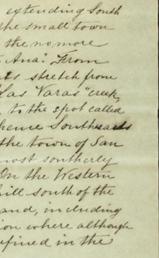 extending South
the small town
the no more
Ana." From
its stretch from
Las Varas" creek,
to the spot called
thence Southwards
the town of San
most southerly
On the Western
hill south of the
and, including
ion where although
confined in the